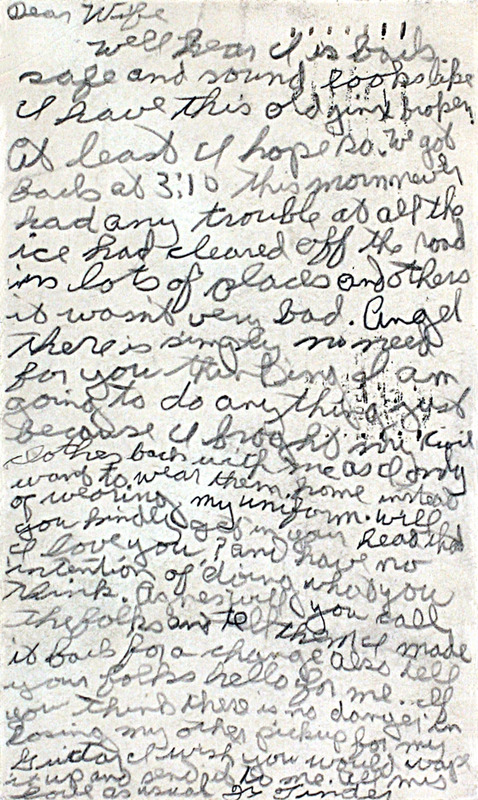 Dear Wife
Well Hear I is back
safe and sound looks like
I have this old jinx broken
At least I hope so. We got
Back at 3:10 this morn never
had any trouble at all the
ice had cleared off the road
in lots of places and others
it wasn't very bad. Angel
there is simply no need
for you thinking I am
going to do anything just
because I brought my Civil
clothes back with me as I only
want to wear them home instead
of wearing my uniform. Will
you kindly get in your head that
I love you, and have no
intention of doing what you
think. As necess will you call
the folks and tell them I made
it back for a change also tell
your folks hello for me. If
you think there is no danger in
Loosing my other pickup for my
Guitar I wish you would wrap
it up and send it to me. All my
Love as usual Jr Tinder